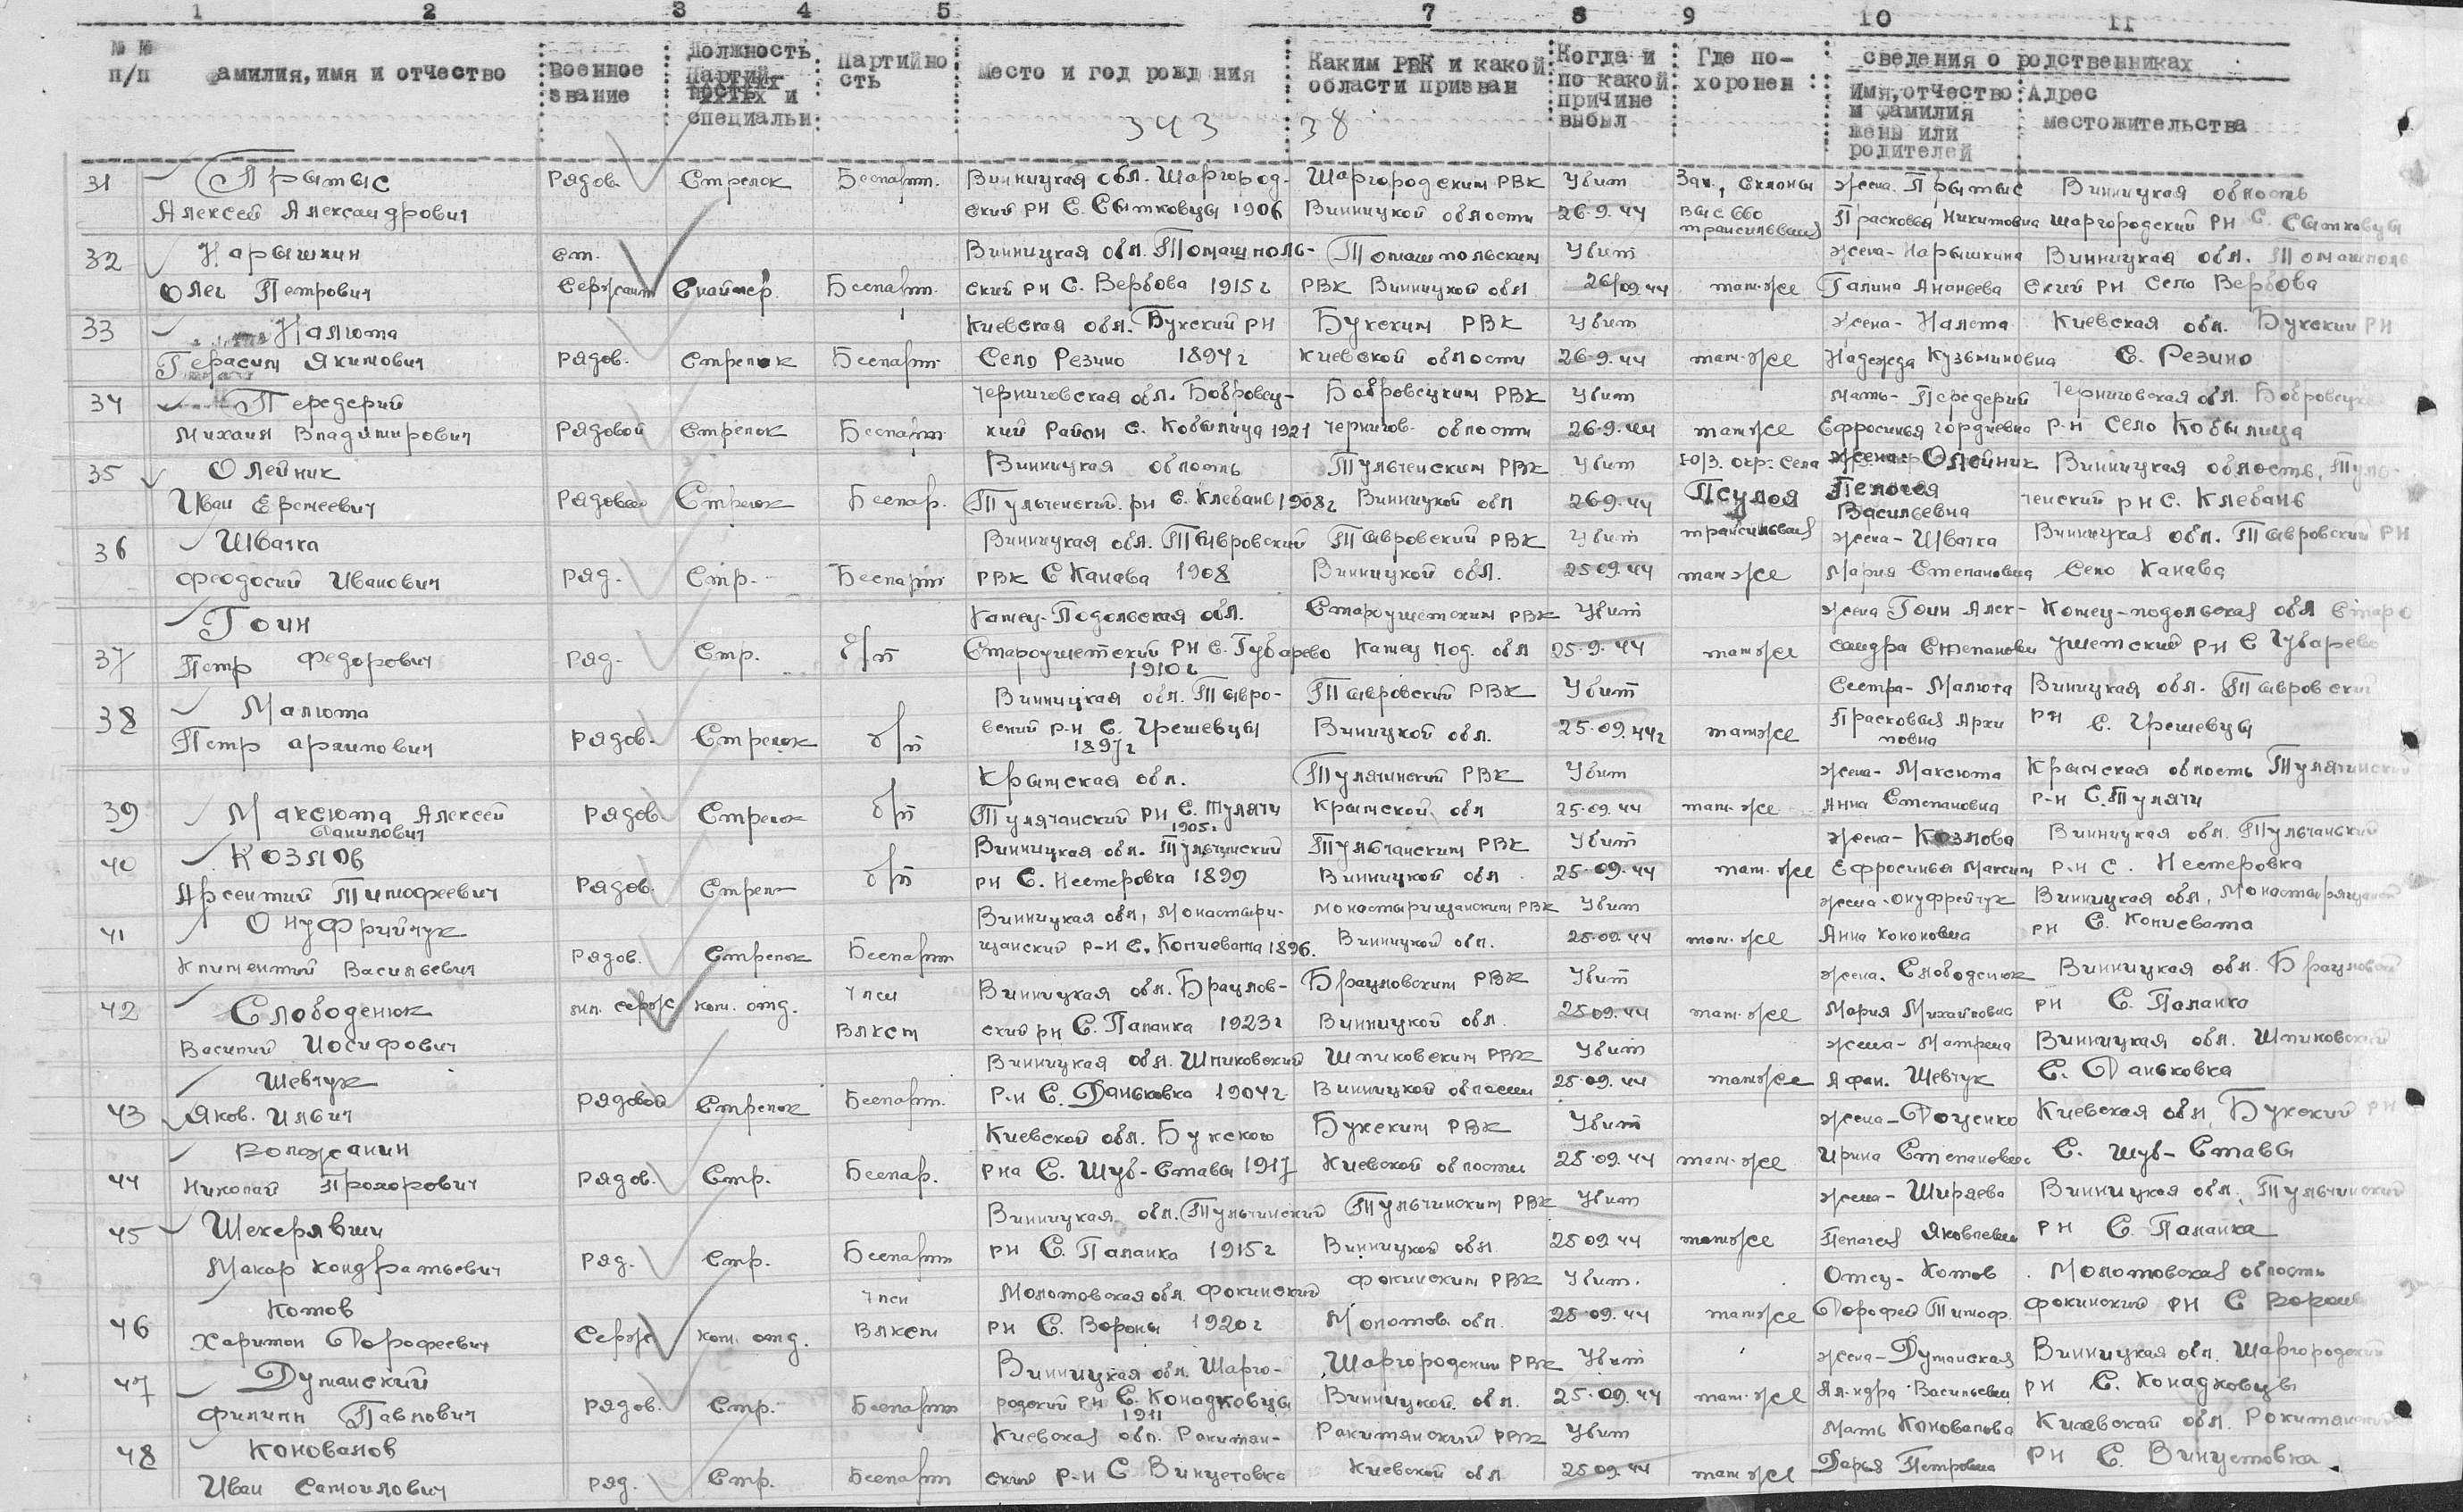 1 2 3 4 5 7 8 9 10 11
№ № п/п
амилия, имя и отчество
Военное звание
Должность Партий ность и специальн
Партийно сть
Место и год рожд ния
Каким РВК и какой области призван
Когда и по какой причине выбыл
Где по- хоронен
сведения о родственниках
Имя, отчество и фамилия жены или родителей
Адрес местожительства
343 38
31 Прытыс Рядов. Стрелок Беспарт. Винницкая обл. Шаргород- Шаргородским РВК Убит Зап., склоны жена Прытыс Винницкая область
Алексей Александрович ский рн С. Сытковцы 1906 Винницкой области 26.9.44 выс 660 трансильвания Прасковья Никитовна Шаргородский рн С. Сытковцы
32 Нарышкин Ст. Винницкая обл. Томашполь- Томашпольским Убит жена - Нарышкина Винницкая обл. Томашполь
Олег Петрович Сержант Снайпер Беспарт. ский рн С. Вербова 1915г РВК Винницкой обл 26/09.44 там-же Галина Ананьева ский рн Село Вербова
33 Налюта Киевская обл. Букский рн Букским РВК Убит жена - Налюта Киевская обл. Букский рн
Герасим Якимович рядов. Стрелок Беспарт. Село Резино 1897г Киевской области 26.9.44 там-же Надежда Кузьминовна С. Резино
34 Передерий Черниговская обл. Бобровиц- Бобровецким РВК Убит Мать - Передерий Черниговская обл. Бобровецк
Михаил Владимирович Рядовой Стрелок Беспарт. кий район С. Кобылица 1921 Чернигов. области 26.9.44 там же Ефросинья Гордиевна р-н Село Кобылица
35 Олейник Винницкая область Тульчинским РВК Убит Ю/З. окр. села жена Олейник Винницкая область, Туль-
Иван Ерсеевич Рядовой Стрелок Беспар. Тульченский рн С. Клебань 1908г Винницкой обл 26.9.44 Псулоя Трансильвания Пелагея Васильевна ченский рн С. Клебань
36 Ивачка Винницкая обл. Тывровский Тывровский РВК Убит жена - Ивачка Винницкая обл. Тывровский рн
Феодосий Иванович ряд. Стр. Беспарт РВК С Канава 1908 Винницкой обл. 25.09.44 там же Мария Степановна Село Канава
Гоин Камец-Подольская обл. Староушетским РВК Убит жена Гоин Алек- Камец-подольская обл Старо
37 Петр Федорович ряд. Стр. б/п Староушетский рн С. Губарево 1910г Камец Под. обл 25.9.44 там же сандра Степановн ушетский рн С Губарево
38 Малюта Винницкая обл. Тывро- Тывровский РВК Убит Сестра - Малюта Виницкая обл. Тывровский
Петр Архипович рядов. Стрелок б/п вский р-н С. Грешевцы 1897г Виницкой обл. 25.09.44г там же Прасковья Архиповна рн С. Грешевцы
Крымская обл. Тулячинский РВК Убит жена - Максюта Крымская область Тулячинский
39 Максюта Алексей Данилович рядов Стрелок б/п Тулячанский рн С. Тулячи 1905г Крымской обл 25.09.44 там-же Анна Степановна р-н С. Тулячи
40 Козлов Винницкая обл. Тульчинский Тульчанским РВК Убит жена - Козлова Винницкая обл. Тульчанский
Арсентий Тимофеевич рядов. Стрелок б/п рн С. Нестеровка 1899 Винницкой обл 25.09.44 там-же Ефросинья Максим р-н С. Нестеровка
41 Онуфрийчук Винницкая обл, Монастыри- Монастырищанским РВК Убит жена - Онуфрейчук Винницкая обл, Монастырищанский
Климентий Васильевич рядов. Стрелок Беспарт щанский р-н С. Копиевата 1896. Винницкой обл. 25.09.44 там-же Анна Кононовна рн С. Копиевата
42 Слободенюк мл. серж ком. отд. Член Винницкая обл. Браулов- Брауловским РВК Убит жена. Слободенюк Винницкая обл. Брауловский
Василий Иосифович ВЛКСМ ский рн С. Паланка 1923г Винницкой обл. 25.09.44 там-же Мария Михайловна рн С. Паланка
Шевчук Винницкая обл. Шпиковский Шпиковским РВК Убит жена - Матрена Винницкая обл. Шпиковский
43 Яков. Ильич Рядовой Стрелок Беспарт. р-н С. Даньковка 1904г Винницкой области 25.09.44 там же Афан. Шевчук С. Даньковка
Воложанин Киевской обл. Букского Букским РВК Убит жена - Доценко Киевская обл. Букский рн
44 Николай Прохорович рядов. Стр. Беспар. рна С. Шуб-Ставы 1917 Киевской области 25.09.44 там-же Ирина Степановна С. Шуб-Ставы
45 Шекерявши Винницкая обл. Тульчинский Тульчинским РВК Убит жена - Ширяева Винницкая обл. Тульчинский
Макар Кондратьевич ряд. Стр. Беспарт рн С. Паланка 1915г Винницкой обл. 25.09.44 там же Пелагея Яковлевна рн С. Паланка
Котов Член Молотовская обл. Фокинский Фокинским РВК Убит. Отец - Котов Молотовская область
46 Харитон Дорофеевич Серж ком. отд. ВЛКСМ рн С. Вороны 1920г Молотов. обл. 25.09.44 там же Дорофей Тимоф. Фокинский рн С Вороны
47 Думанский Винницкая обл. Шарго- Шаргородский РВК Убит жена - Думанская Винницкая обл. Шаргородский
Филипп Павлович рядов. Стр. Беспарт родский рн С. Конадковцы 1911 Винницкой обл. 25.09.44 там-же Ал-ндра Васильевн рн С. Конадковцы
48 Коновалов Киевская обл. Ракитян- Ракитянский РВК Убит Мать Коновалова Киевской обл. Рокитянский
Иван Самоилович ряд. Стр. Беспарт ский р-н С Винцетовка Киевской обл 25.09.44 там же Дарья Петровна рн С. Винцетовка.